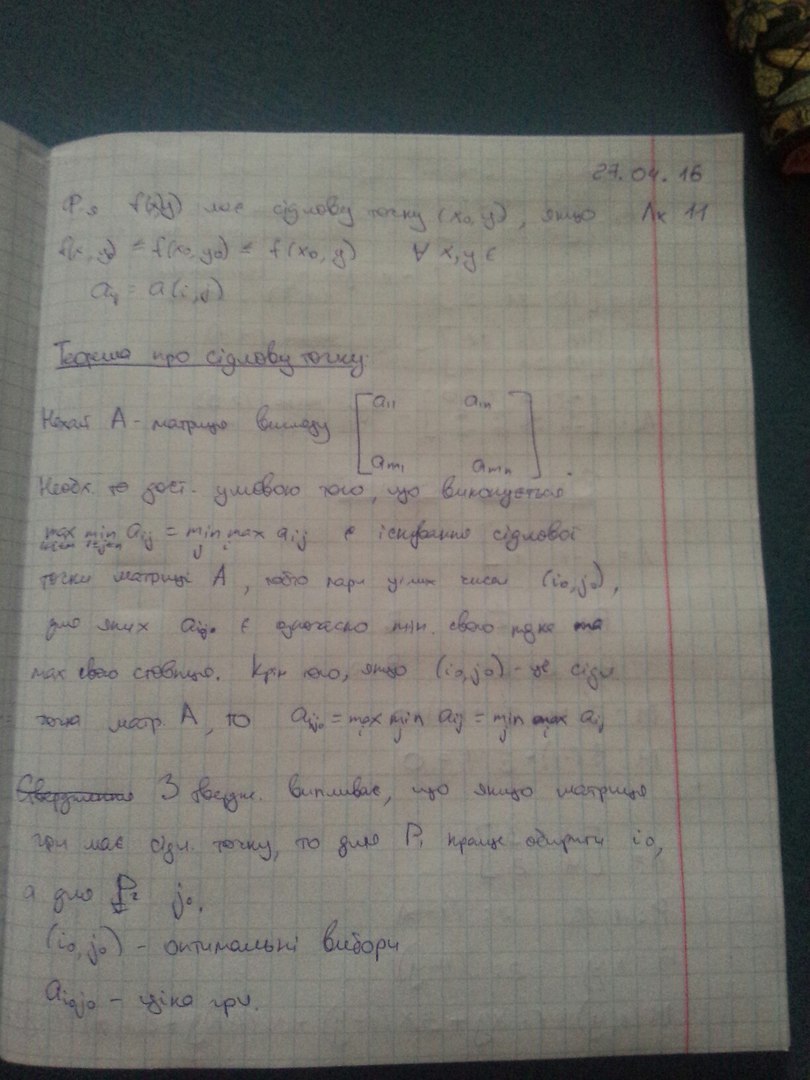 27.04.16
Ф-я f(x,y) має сідлову точку (x₀, y₀), якщо Лк 11
f(x, y₀) ≤ f(x₀, y₀) ≤ f(x₀, y) ∀ x, y є
aᵢⱼ = a(i, j)
Теорема про сідлову точку.
Нехай A - матриця викладу [a₁₁ a₁ₙ
aₘ₁ aₘₙ].
Необх. та дост. умовою того, що виконується
max min aᵢⱼ = min max aᵢⱼ є існування сідлової
точки матриці A, тобто пари цілих чисел (i₀, j₀),
для яких aᵢ₀ⱼ₀ є одночасно min. свого рядка та
max свого стовпця. Крім того, якщо (i₀, j₀) - це сідл
точка матр. A, то aᵢ₀ⱼ₀ = max min aᵢⱼ = min max aᵢⱼ
Твердження З твердж. випливає, що якщо матриця
гри має сідл. точку, то для P₁ краще обирати i₀,
а для P₂ j₀.
(i₀, j₀) - оптимальні вибори
aᵢ₀ⱼ₀ - ціна гри.